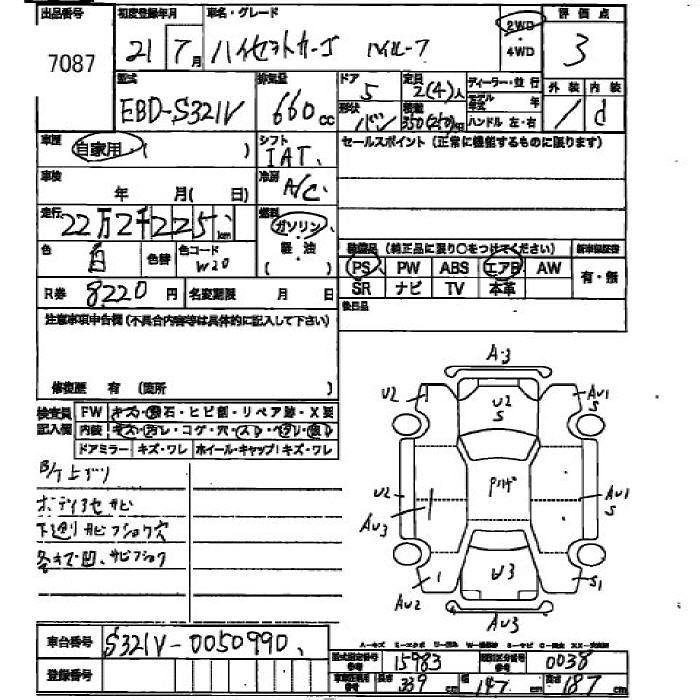 出品番号 初度登録年月 車名・グレード 2WD 評価点
7087 21 7月 ハイゼットカーゴ ハイルーフ 4WD 3
型式 排気量 ドア 定員 ディーラー・並行 外装 内装
EBD-S321V 660cc 5 2(4)人 モデル年式 年 d
形状 積載
バン 350(250)kg ハンドル 左・右
車歴 自家用 ( ) シフト セールスポイント(正常に機能するものに限ります)
IAT
車検 年 月( 日) 冷房 A/C
走行 22万2千225km 燃料 ガソリン
軽油
( )
色 白 色替 色コード W20
装備品(純正品に限り○をつけてください) 新車保証書
PS PW ABS エアB AW 有・無
SR ナビ TV 本革
R券 8220円 名変期限 月 日 後日品
注意事項申告欄(不具合内容等は具体的に記入して下さい)
修復歴 有 (箇所 )
検査員記入欄 FW キズ・飛石・ヒビ割・リペア跡・X要
内装
ドアミラー キズ・ワレ ホイール・キャップ キズ・ワレ
ボディ サビ
下廻りサビ 穴
A・3
U2 U2 S AU1 S
U2 AU3 AU1 S
AU2 1 W3 S1
AU3
車台番号 S321V-0050990
登録番号
型式指定番号 15983 類別区分番号 0038
長さ 339cm 幅 147cm 高さ 187cm